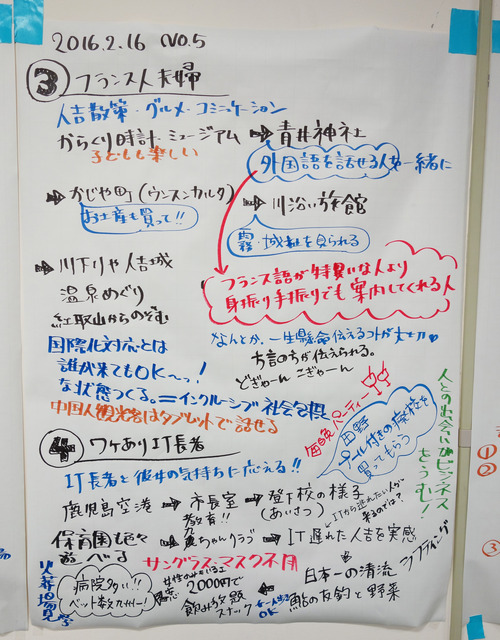 2016.2.16 No.5
③ フランス人夫婦
人吉散策・グルメ・コミニュケーション
からくり時計 ミュージアム ➡ 青井神社
子どもも楽しい
外国語を話せる人も一緒に
➡ かじや町 (ウンスンカルタ)
お土産も買って!!
➡ 川沿い旅館
霧・城趾を見られる
➡ 川下りや人吉城
温泉めぐり
紅取山からのぞむ
フランス語が得意な人より
身振り手振りでも案内してくれる人
なんとか、一生懸命伝えるコトが大切
方言の方が伝えられる。
どぎゃーん こぎゃーん
国際化対応とは
誰が来てもOK〜っ!
な状態つくる。=インクルーシブ社会包摂
中国人観光客はタブレットで話せる
④ ワケありIT長者
IT長者と彼女の気持ちに応える!!
毎晩パーティー
田野
プール付きの廃校を
買ってもらう
人との出会いがビジネス
をうむ!
鹿児島空港 ➡ 市長室 ➡ 登下校の様子
教育!!
(あいさつ)
ITから逃れたい人が
来るのでは?
保育園も色々
遊べる
ちゃんクラブ ➡ IT遅れた人吉を実感
サングラス・マスク不用
火葬場見学
病院多い!!
ベット数九州一!
女性のみいること
2000円で
飲み放題
スナック
OK
日本一の清流
ラフティング
鮎の友釣と野菜